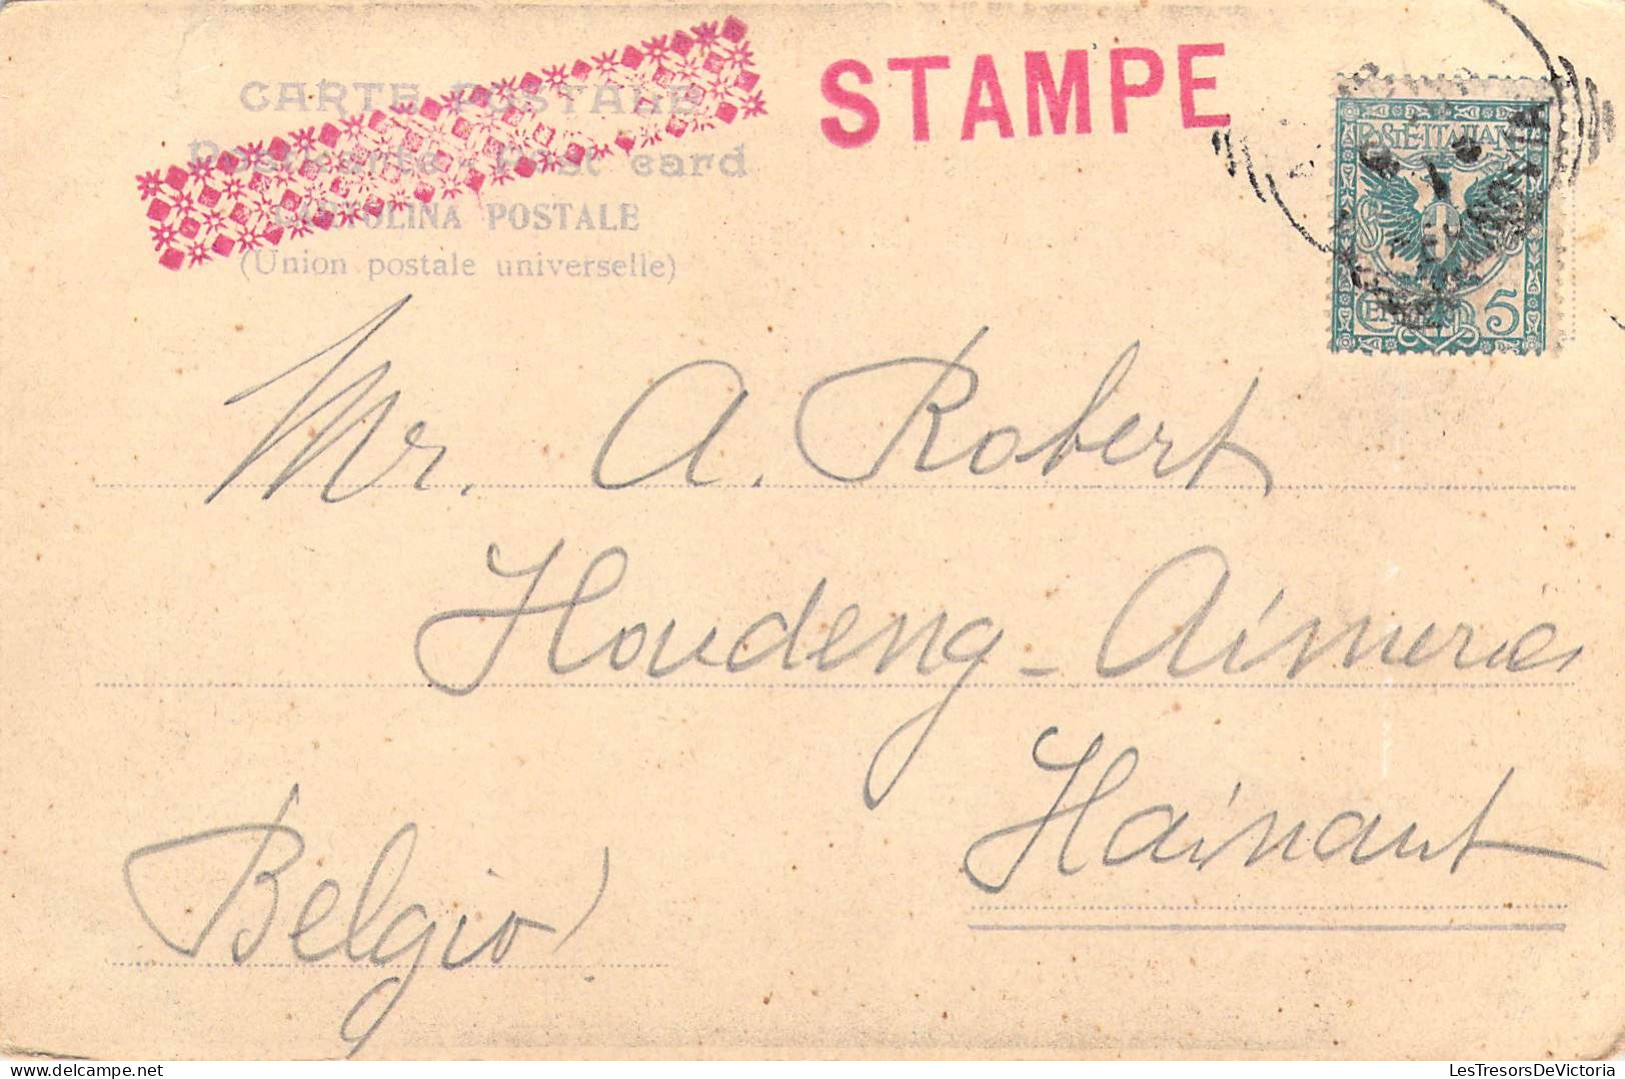 CARTE POSTALE
Postkarte - Post card
CARTOLINA POSTALE
(Union postale universelle)
STAMPE
POSTE ITALIANE
5
Mr. A. Robert
Houdeng - Aimeries
Hainaut
Belgio
LesTresorsDeVictoria